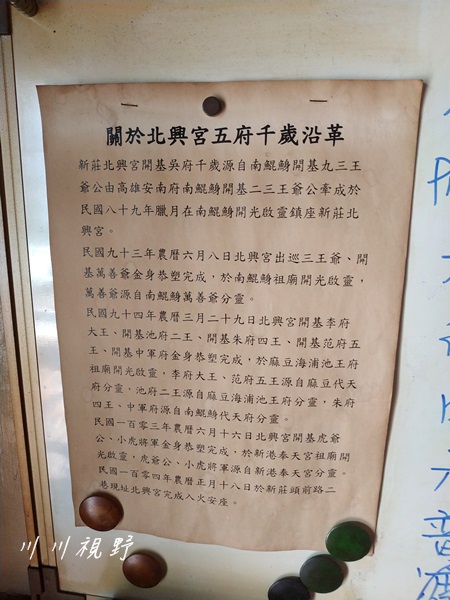 關於北興宮五府千歲沿革
新莊北興宮開基吳府千歲源自南鯤鯓開基九三王
爺公由高雄安南府南鯤鯓開基二三王爺公牽成於
民國八十九年臘月在南鯤鯓開光啟靈鎮座新莊北
興宮。
民國九十三年農曆六月八日北興宮出巡三王爺、開
基萬善爺金身恭塑完成，於南鯤鯓祖廟開光啟靈，
萬善爺源自南鯤鯓萬善爺分靈。
民國九十四年農曆三月二十九日北興宮開基李府
大王、開基池府二王、開基朱府四王、開基范府五
王、開基中軍府金身恭塑完成，於麻豆海浦池王府
祖廟開光啟靈，李府大王、范府五王源自麻豆代天
府分靈，池府二王源自麻豆海浦池王府分靈，朱府
四王、中軍府源自南鯤鯓代天府分靈。
民國一百零三年農曆六月十六日北興宮開基虎爺
公、小虎將軍金身恭塑完成，於新港奉天宮祖廟開
光啟靈，虎爺公、小虎將軍源自新港奉天宮分靈。
民國一百零四年農曆正月十八日於新莊頭前路二
巷現址北興宮完成入火安座。
川川視野
音